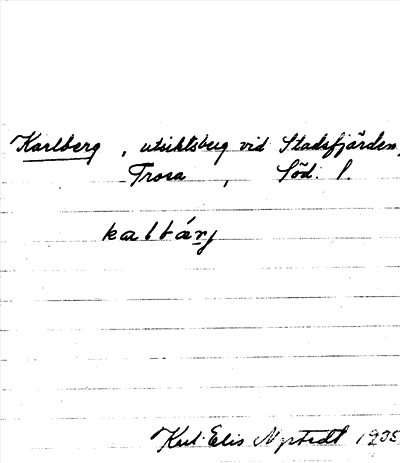 Karlberg, utsiktsberg vid Stadsfjärden,
Trosa, Söd. l.
kalbárj
Karl-Elis Nystedt 1935